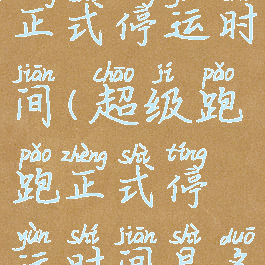 正式停运时
jiān chāo jí pǎo
间(超级跑
pǎo zhèng shì tíng
跑正式停
yùn shí jiān shì duō
运时间是多